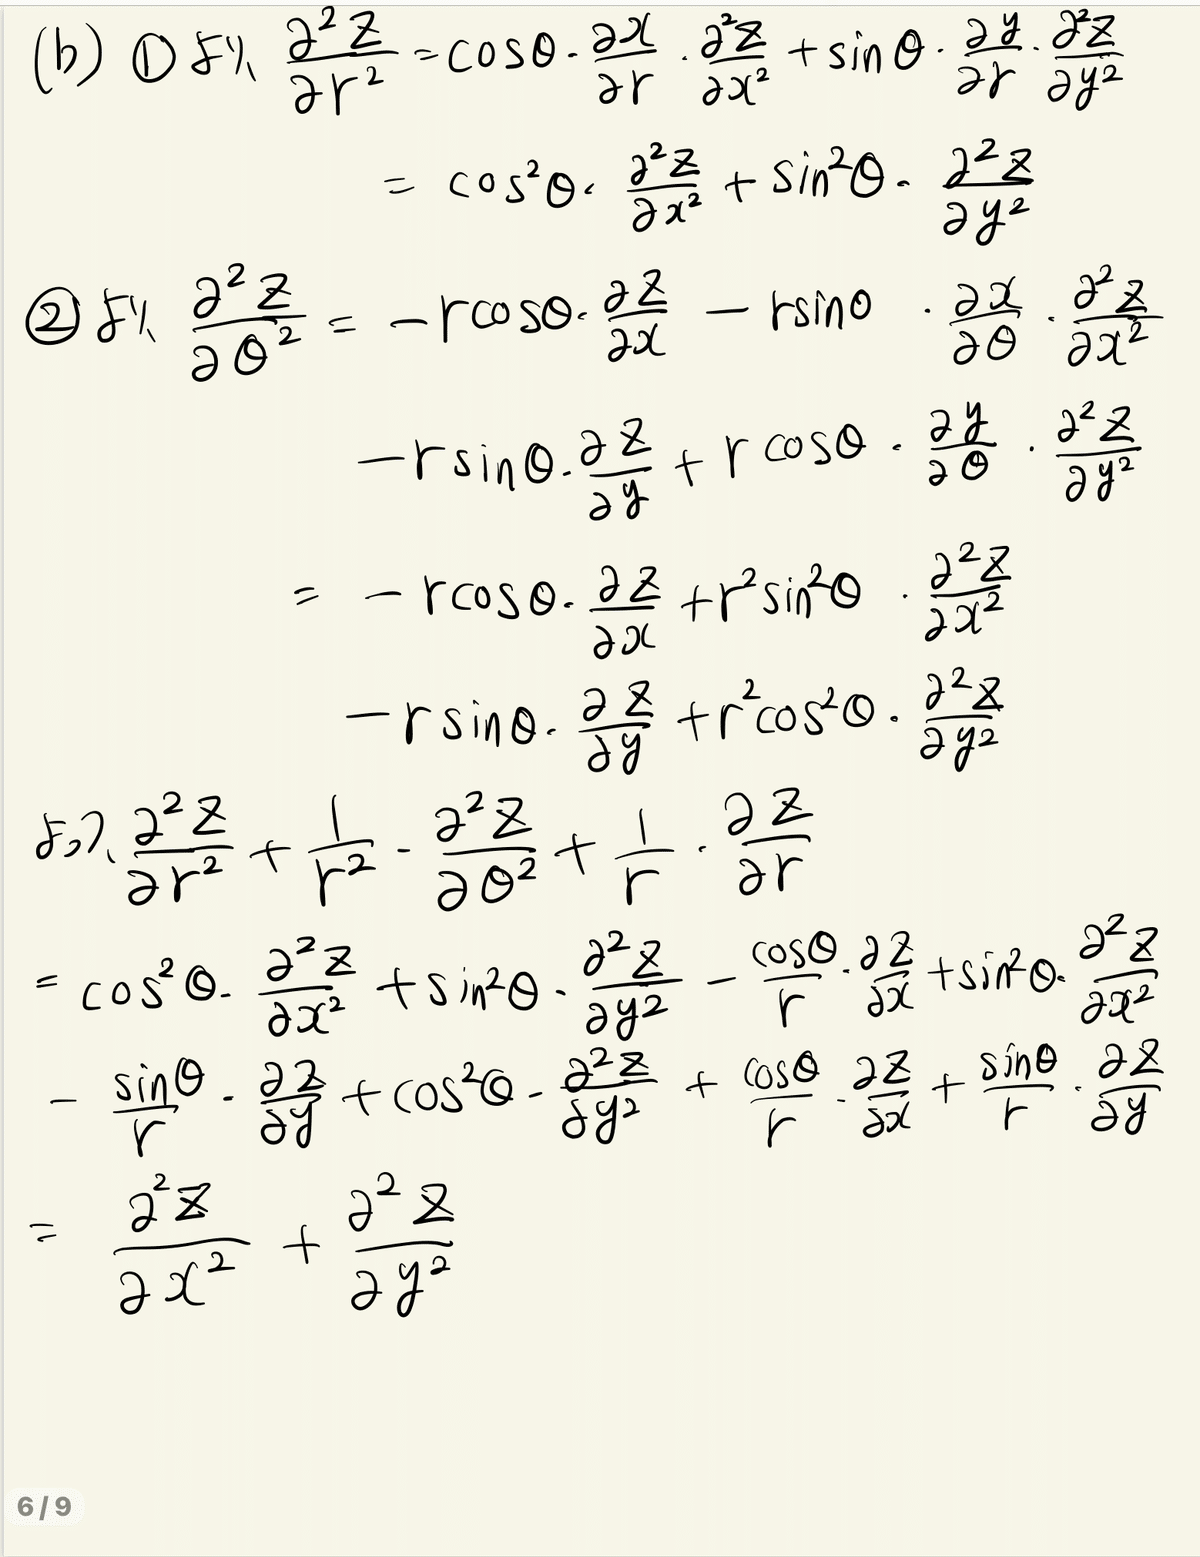 (b) ①より、∂²z/∂r² = cosθ・∂x/∂r・∂²z/∂x² + sinθ・∂y/∂r・∂²z/∂y²
= cos²θ・∂²z/∂x² + sin²θ・∂²z/∂y²
②より、∂²z/∂θ² = -rcosθ・∂z/∂x - rsinθ・∂x/∂θ・∂²z/∂x²
-rsinθ・∂z/∂y + rcosθ・∂y/∂θ・∂²z/∂y²
= -rcosθ・∂z/∂x + r²sin²θ・∂²z/∂x²
-rsinθ・∂z/∂y + r²cos²θ・∂²z/∂y²
よって、∂²z/∂r² + 1/r²・∂²z/∂θ² + 1/r・∂z/∂r
= cos²θ・∂²z/∂x² + sin²θ・∂²z/∂y² - cosθ/r・∂z/∂x + sin²θ・∂²z/∂x²
- sinθ/r・∂z/∂y + cos²θ・∂²z/∂y² + cosθ/r・∂z/∂x + sinθ/r・∂z/∂y
= ∂²z/∂x² + ∂²z/∂y²
6/9